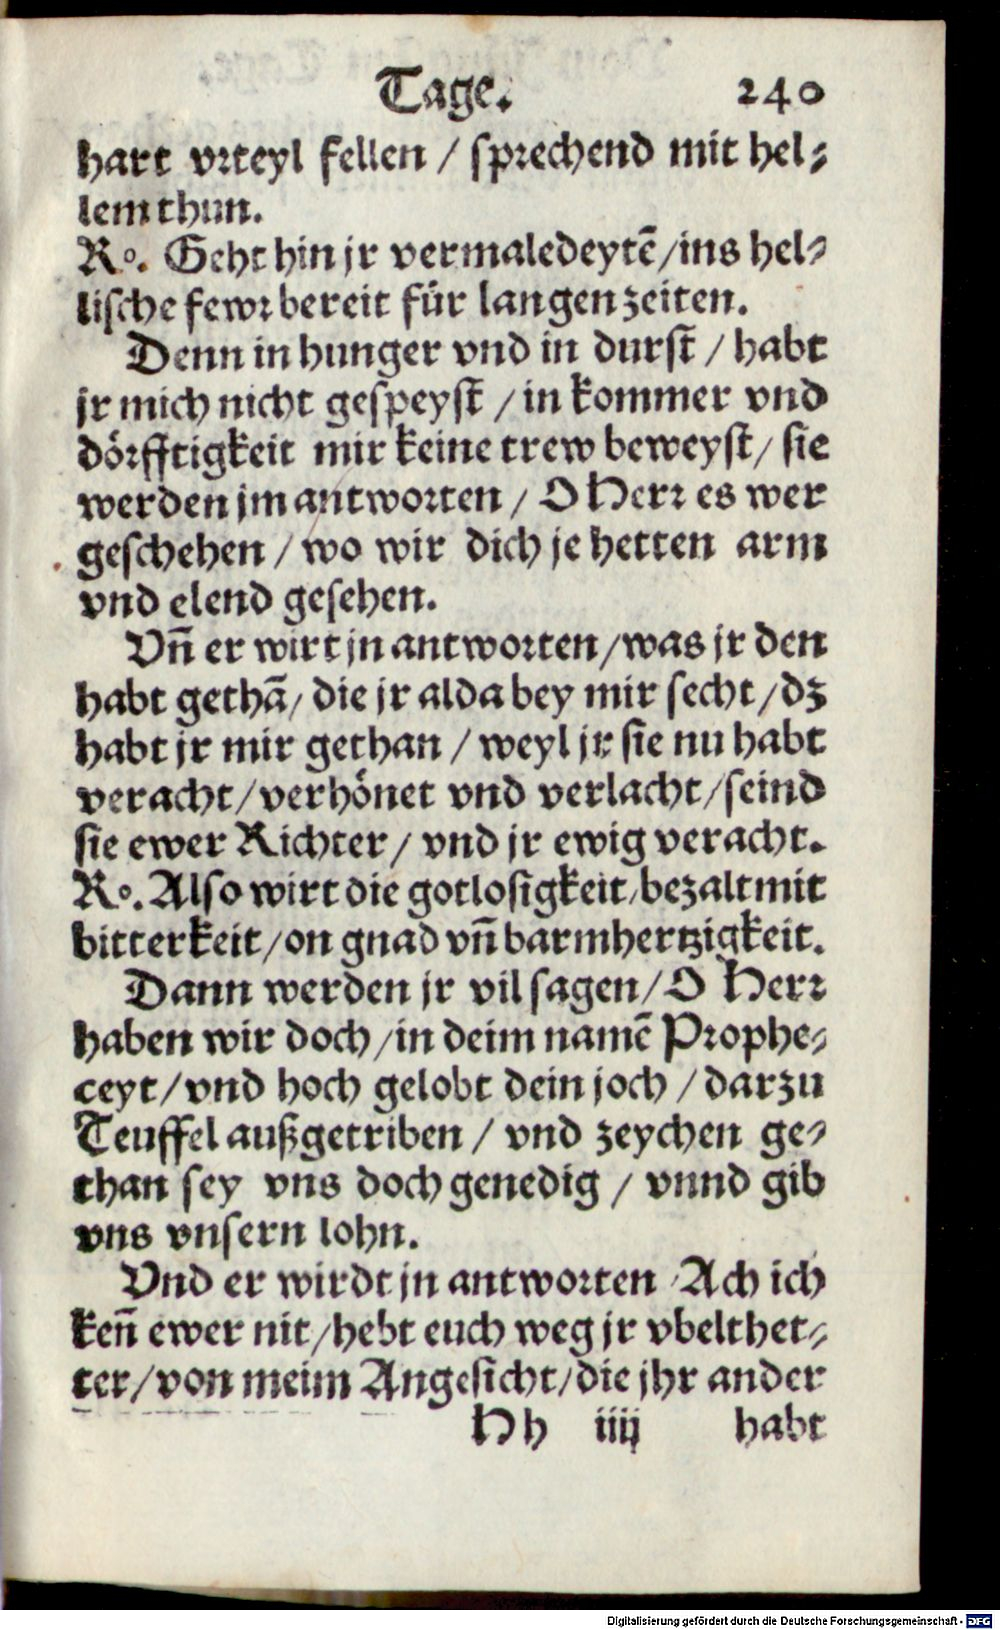 Tage. 240
hart vrteyl fellen / sprechend mit hel⸗
lem thun.
Ro. Geht hin jr vermaledeytē/ins hel⸗
lische fewr bereit für langen zeiten.
Denn in hunger vnd in durst / habt
jr mich nicht gespeyst / in kommer vnd
dörfftigkeit mir keine trew beweyst/ sie
werden jm antworten / O Herr es wer
geschehen / wo wir dich je hetten arm
vnd elend gesehen.
Vn̄ er wirt jn antworten/was jr den
habt gethā/ die jr alda bey mir secht/dz
habt jr mir gethan / weyl jr sie nu habt
veracht/verhönet vnd verlacht/seind
sie ewer Richter/ vnd jr ewig veracht.
Ro. Also wirt die gotlosigkeit/bezalt mit
bitterkeit/on gnad vn̄ barmhertzigkeit.
Dann werden jr vil sagen/O Herr
haben wir doch/in deim namē Prophe⸗
ceyt/vnd hoch gelobt dein joch / darzu
Teuffel außgetriben / vnd zeychen ge⸗
than sey vns doch genedig / vnnd gib
vns vnsern lohn.
Vnd er wirdt jn antworten /Ach ich
ken̄ ewer nit/hebt euch weg jr vbelthet⸗
ter/von meim Angesicht/die jhr ander
Hh iiij habt
Digitalisierung gefördert durch die Deutsche Forschungsgemeinschaft - DFG